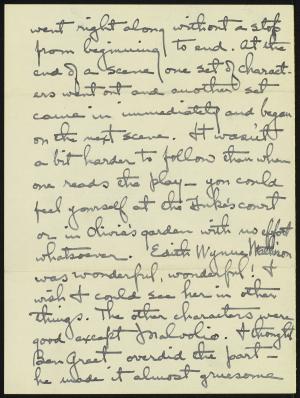 went right along without a stop
from beginning to end. At the
end of a scene one set of charact-
ers went out and another set
came in immediately and began
on the next scene. It wasn't
a bit harder to follow than when
one reads the play – you could
feel yourself at the Duke's court
or in Olivia's garden with no effort
whatsoever. Edith Wynne Matthison
was wonderful, wonderful! I
wish I could see her in other
things. The other characters were
good except Malvolio. I thought
Ben Greet overdid the part –
he made it almost gruesome